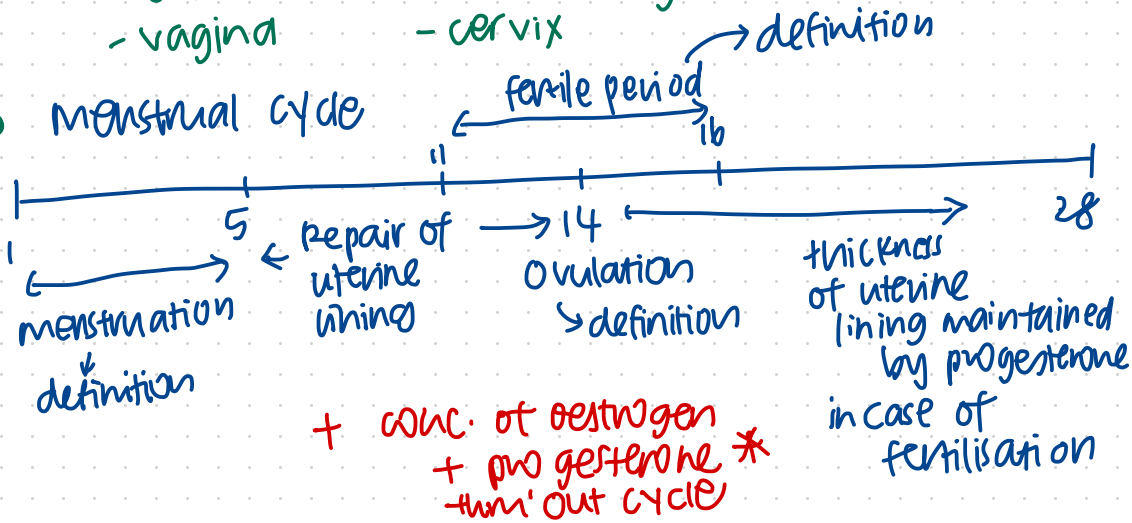 - vagina - cervix
→ definition
fertile period
menstrual cycle
11 16
1 5 14 28
← repair of → uterine lining
menstruation
↓
definition
ovulation
↳ definition
thickness
of uterine
lining maintained
by progesterone
in case of
fertilisation
+ conc. of oestrogen
+ progesterone *
thru' out cycle